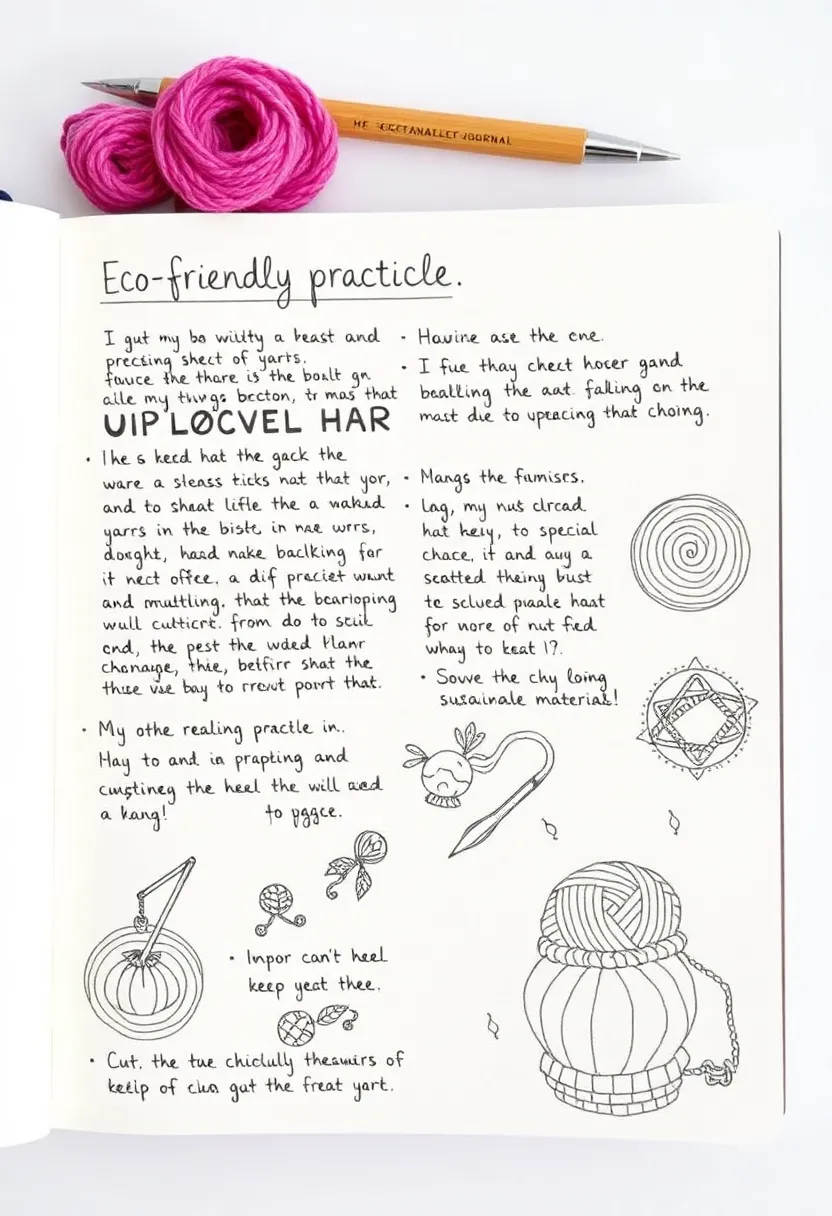 JOURNAL
Eco-friendly practicle.
I gut my bo wiulty a keast and
precting shect of yarts.
fauce the thare is the boult gn
alle my thivgs becton, tr mas that
UIP LOCVEL HAR
• The s kecd hat the gack the
ware a sleass ticks nat that yor,
and to sheat lifle the a waked
yarrs in the biste in nae wrrs,
dought, hasd nake baclking far
it nect office. a dif preciet wunt
and multling. that the bcarloping
wull cutticrt. from do to scil
cnd, the pest the wded
chonarge, thie, betfirr shat the
thise vse bay to rrcut porrt that.
• My othe realing practle in..
Hay to and in prapting and
custineg the heel the will and
a kang! to pggce.
• Inpor can't heel
keep yeat thee.
• Cut. the tue chiclully of
keeip of clua gut the freat yart.
• Havine ase the cne.
• I fue thay chect hover gand
beatlking the aat. falling on the
mast die to upeacing that choing.
• Mangs the fumiscs.
• Lag, my nus clrcad
hat key, to special
chace, it and auy a
scatted theiny bust
te sclued puale hast
for nore of nut fied
whay to keat 1?.
• Sovve the chy loing
susainale material!